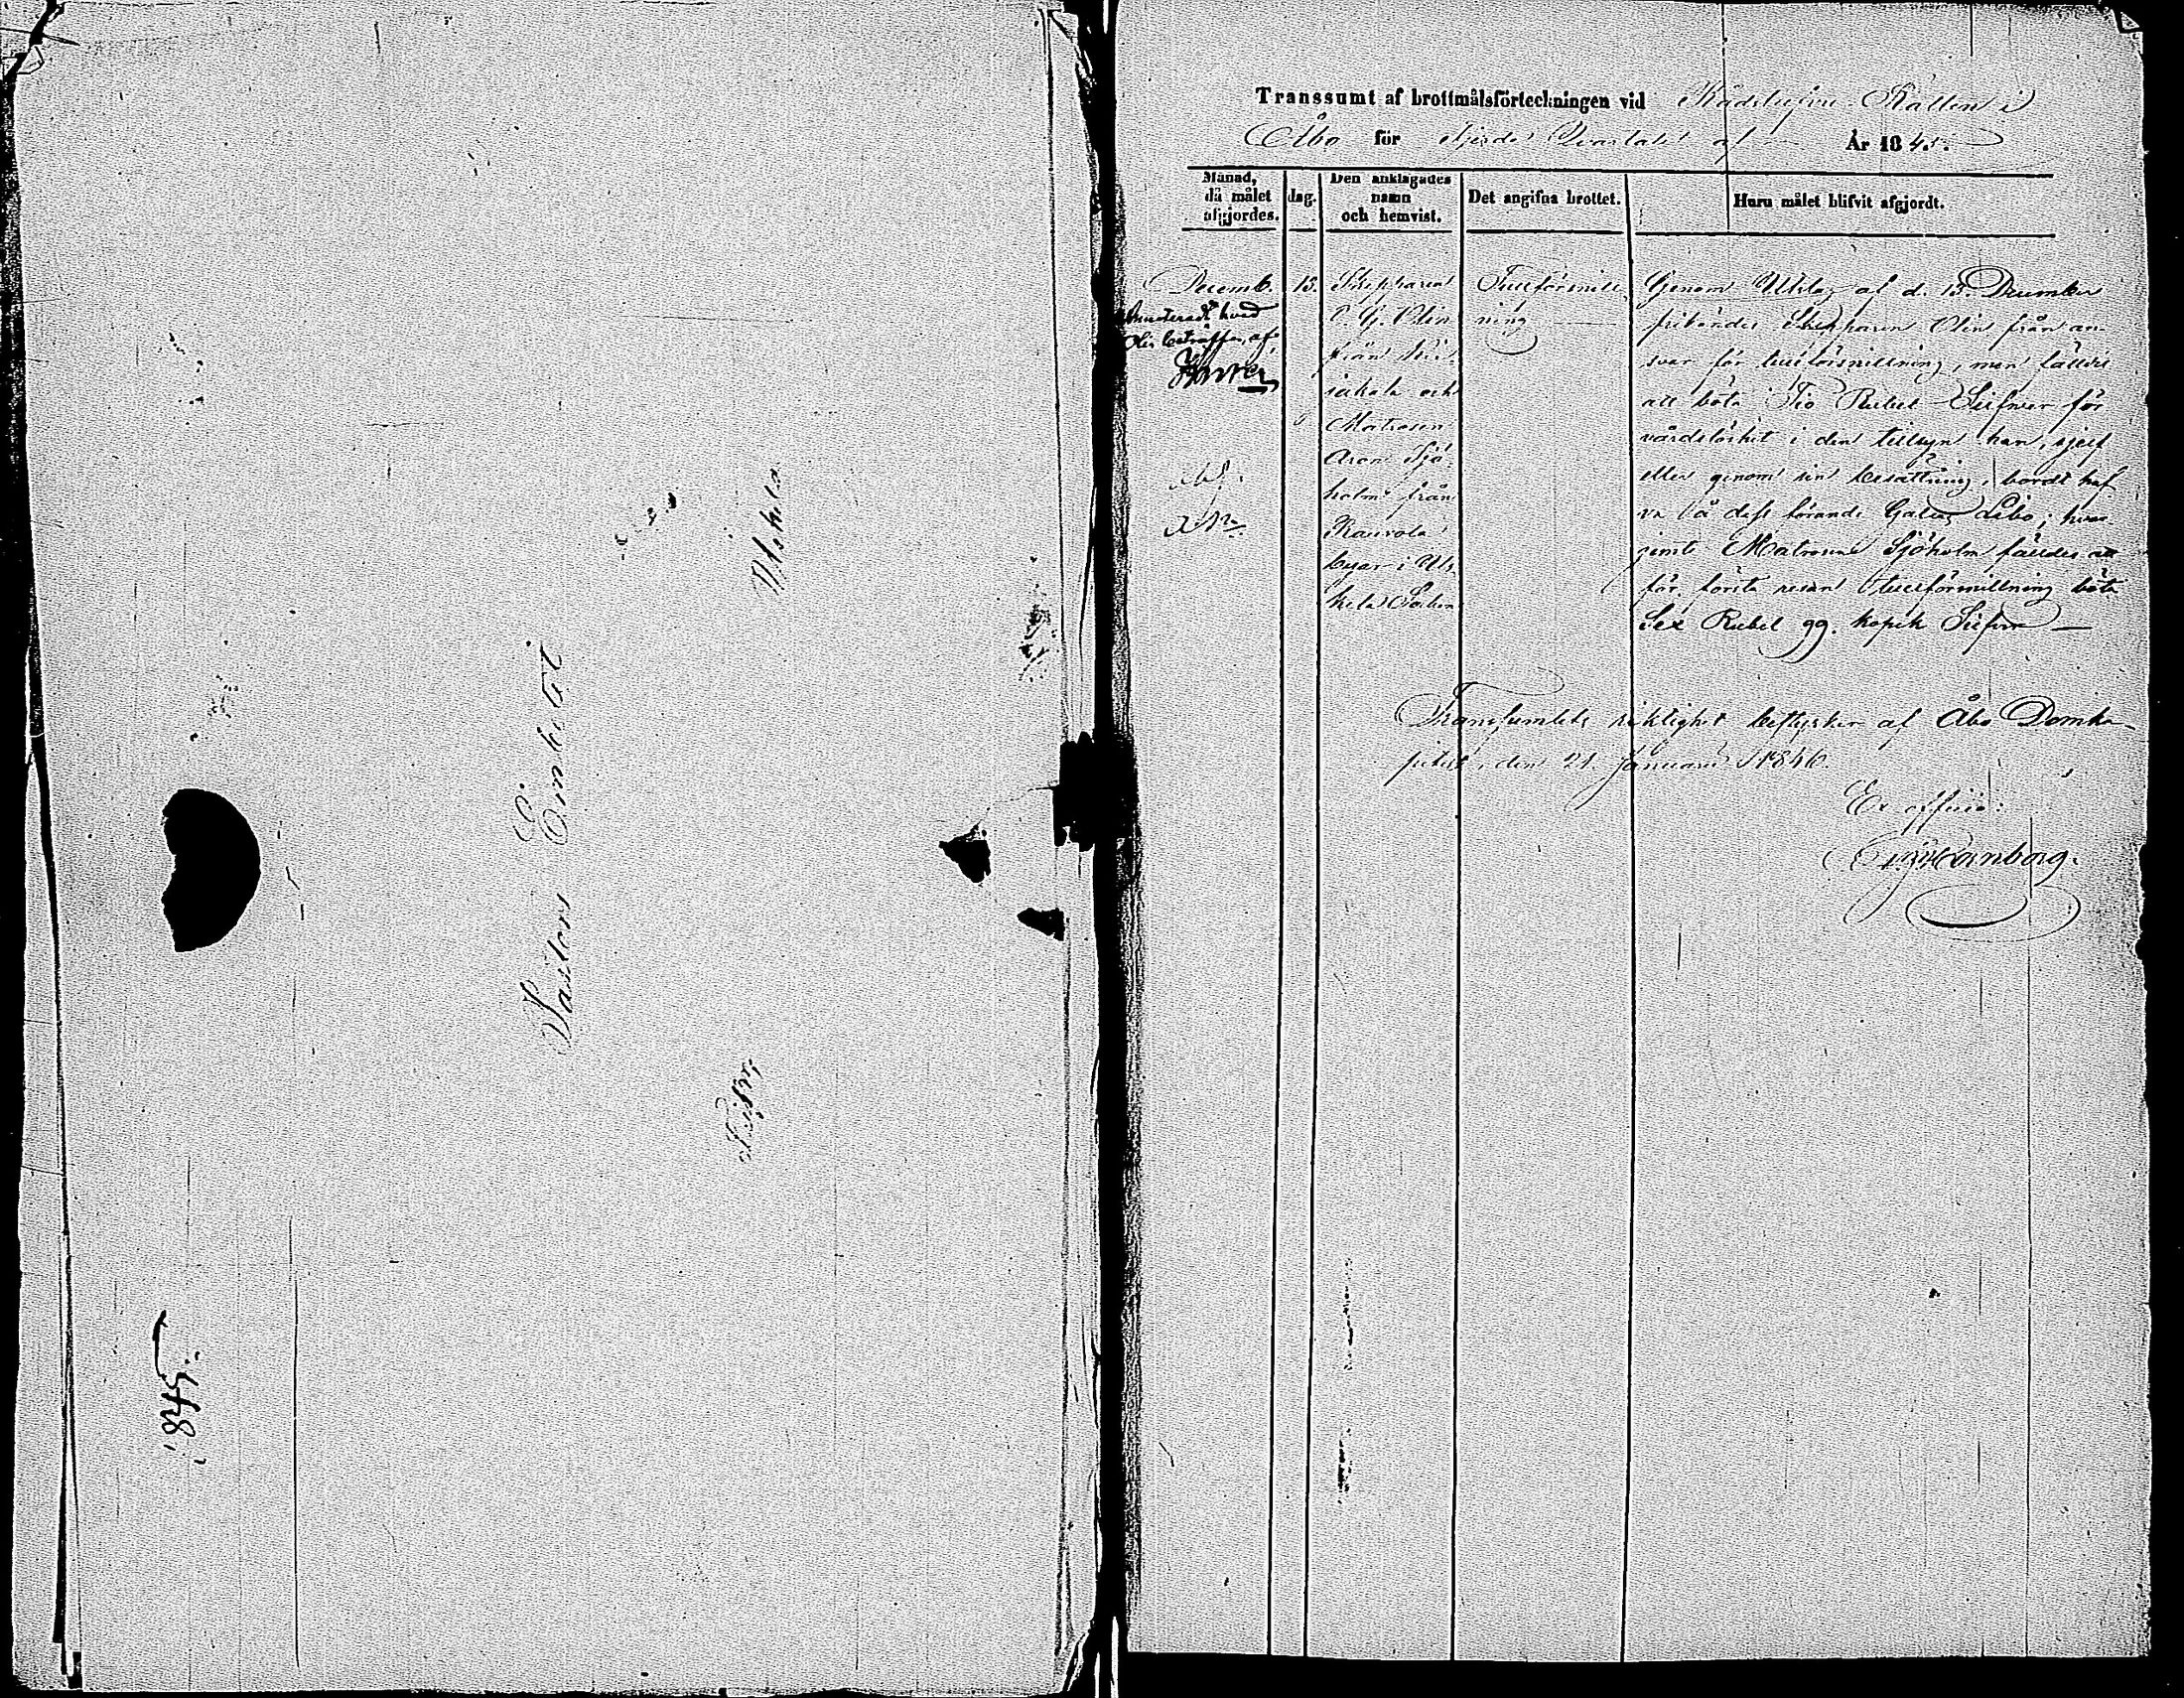 Pastors Embetet
Uskela
1845.
Transsumt af brottmålsförteckningen vid Rådstufvu-Rätten i
Åbo för fjerde Qvartalet af År 1845.
Månad, då målet afgjordes.
dag.
Den anklagades namn och hemvist.
Det angifna brottet.
Huru målet blifvit afgjordt.
Decemb.
15.
Skepparen
C. G. Olin
från
och
Matrosen
Aron Sjö-
holm från
byar i Us-
kela Socken
Tullförsnill-
ning
Genom Utslag af d. 15. December
frikändes Skepparen Olin från an-
svar för tullförsnillning, men fälldes
att böta Tio Rubel Silfwer för
vårdslöshet i den tillsyn han, sjelf
eller genom sin besättning, bordt haf-
va å dess förande Galeas Åbo; hvar-
jemte Matrosen Sjöholm fälldes att
för första resan tullförsnillning böta
Sex Rubel 99. kopek Silfver —
Transsumtets riktighet bestyrker af Åbo Domka-
pitel, den 21. Januari 1846.
Ex officio: